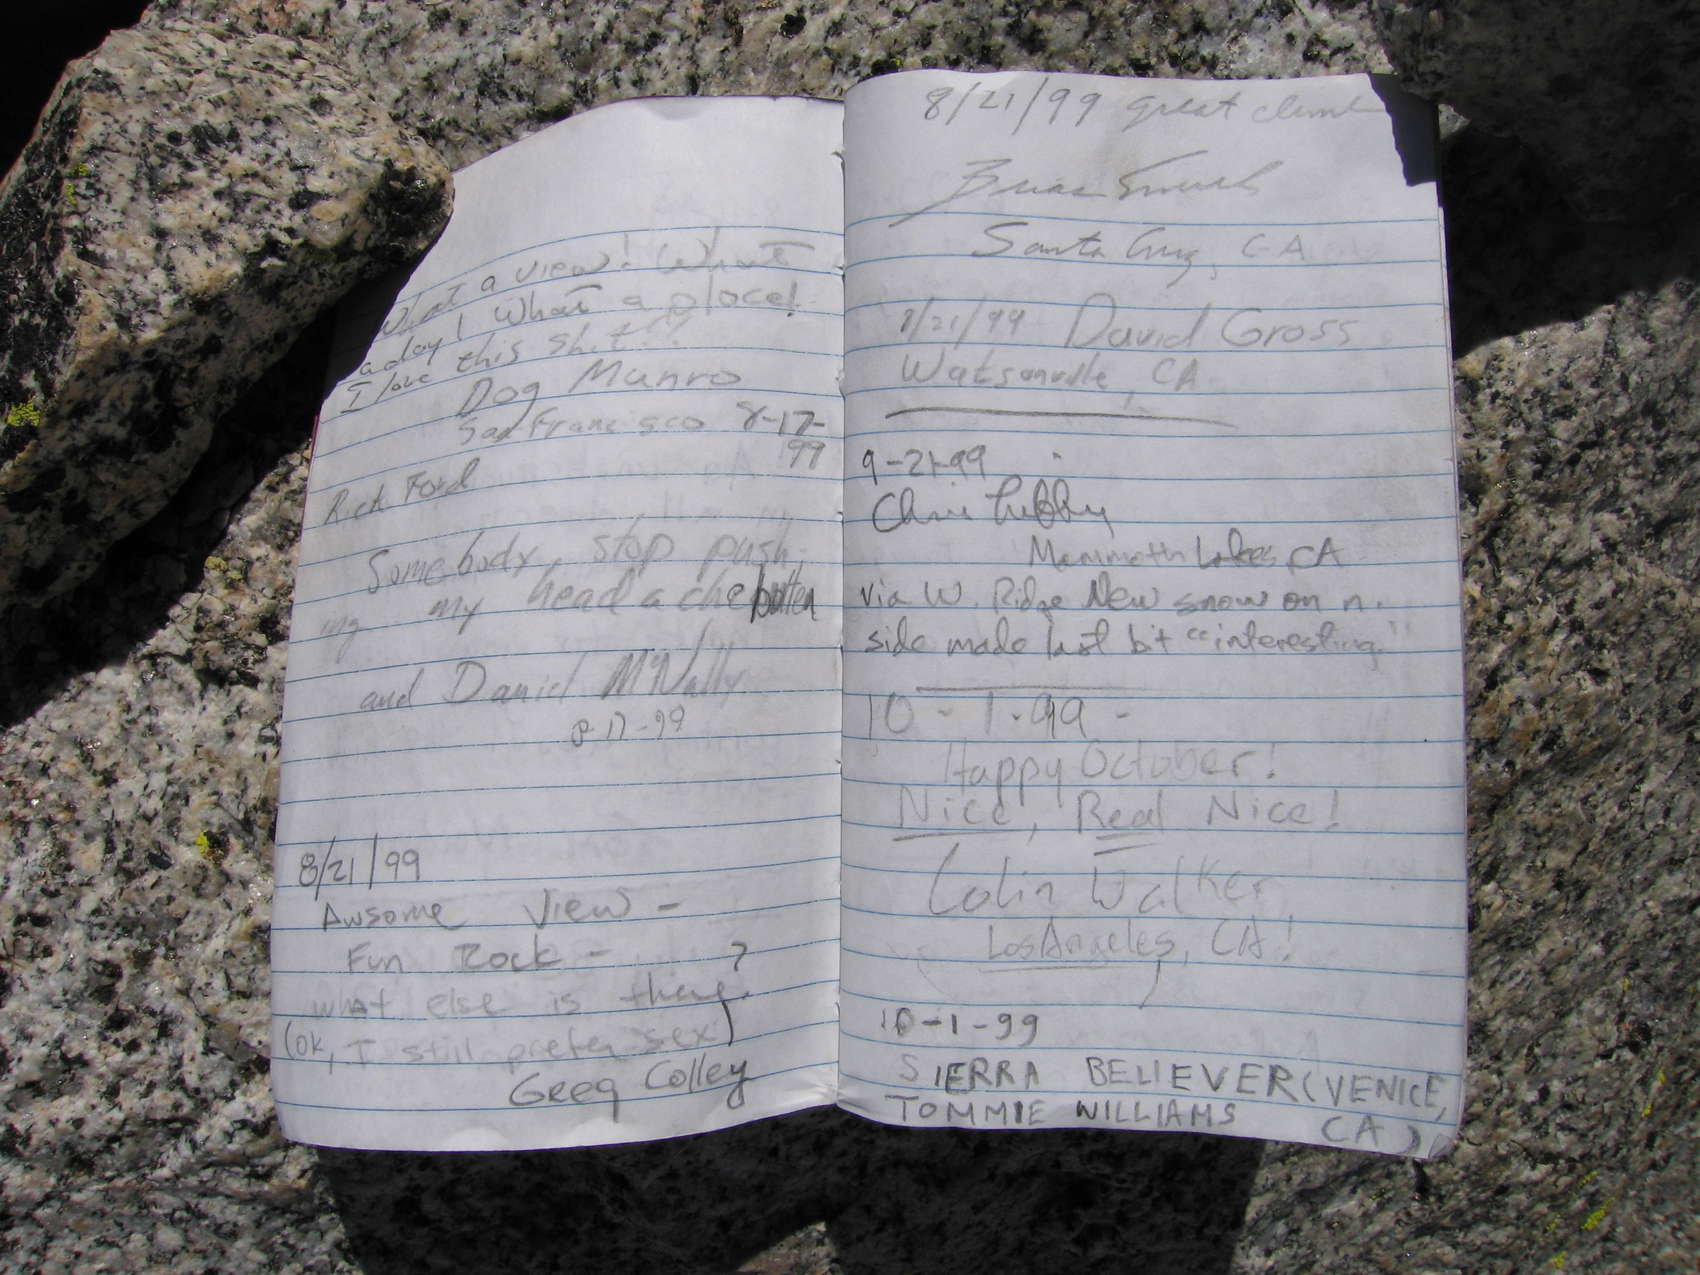 What a view! What
a day! What a place!
I love this shit!!
Dog Munro
San Francisco 8-17-
99
Rick Ford
Somebody, stop push-
ing my head ache button
and Daniel McNally
8-17-99
8/21/99
Awsome View -
Fun Rock -
what else is there?
(OK, I still prefer sex)
Greg Colley
8/21/99 great climb
Brian
Santa Cruz, CA
8/21/99 David Gross
Watsonville, CA
9-21-99
Chris Libby
Mammoth Lakes, CA
via W. Ridge New snow on n.
side made last bit "interesting"
10-1-99-
Happy October!
Nice, Real Nice!
Colin Walker
Los Angeles, CA!
10-1-99
SIERRA BELIEVER (VENICE,
TOMMIE WILLIAMS CA)